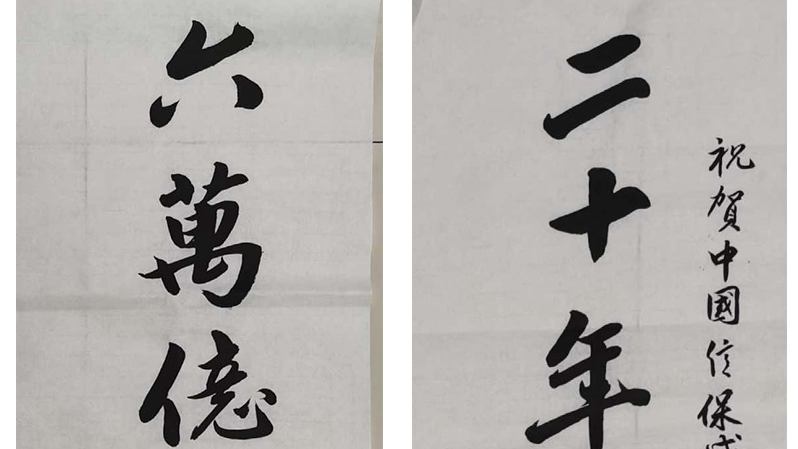 祝賀中國信保
二十年
六萬億